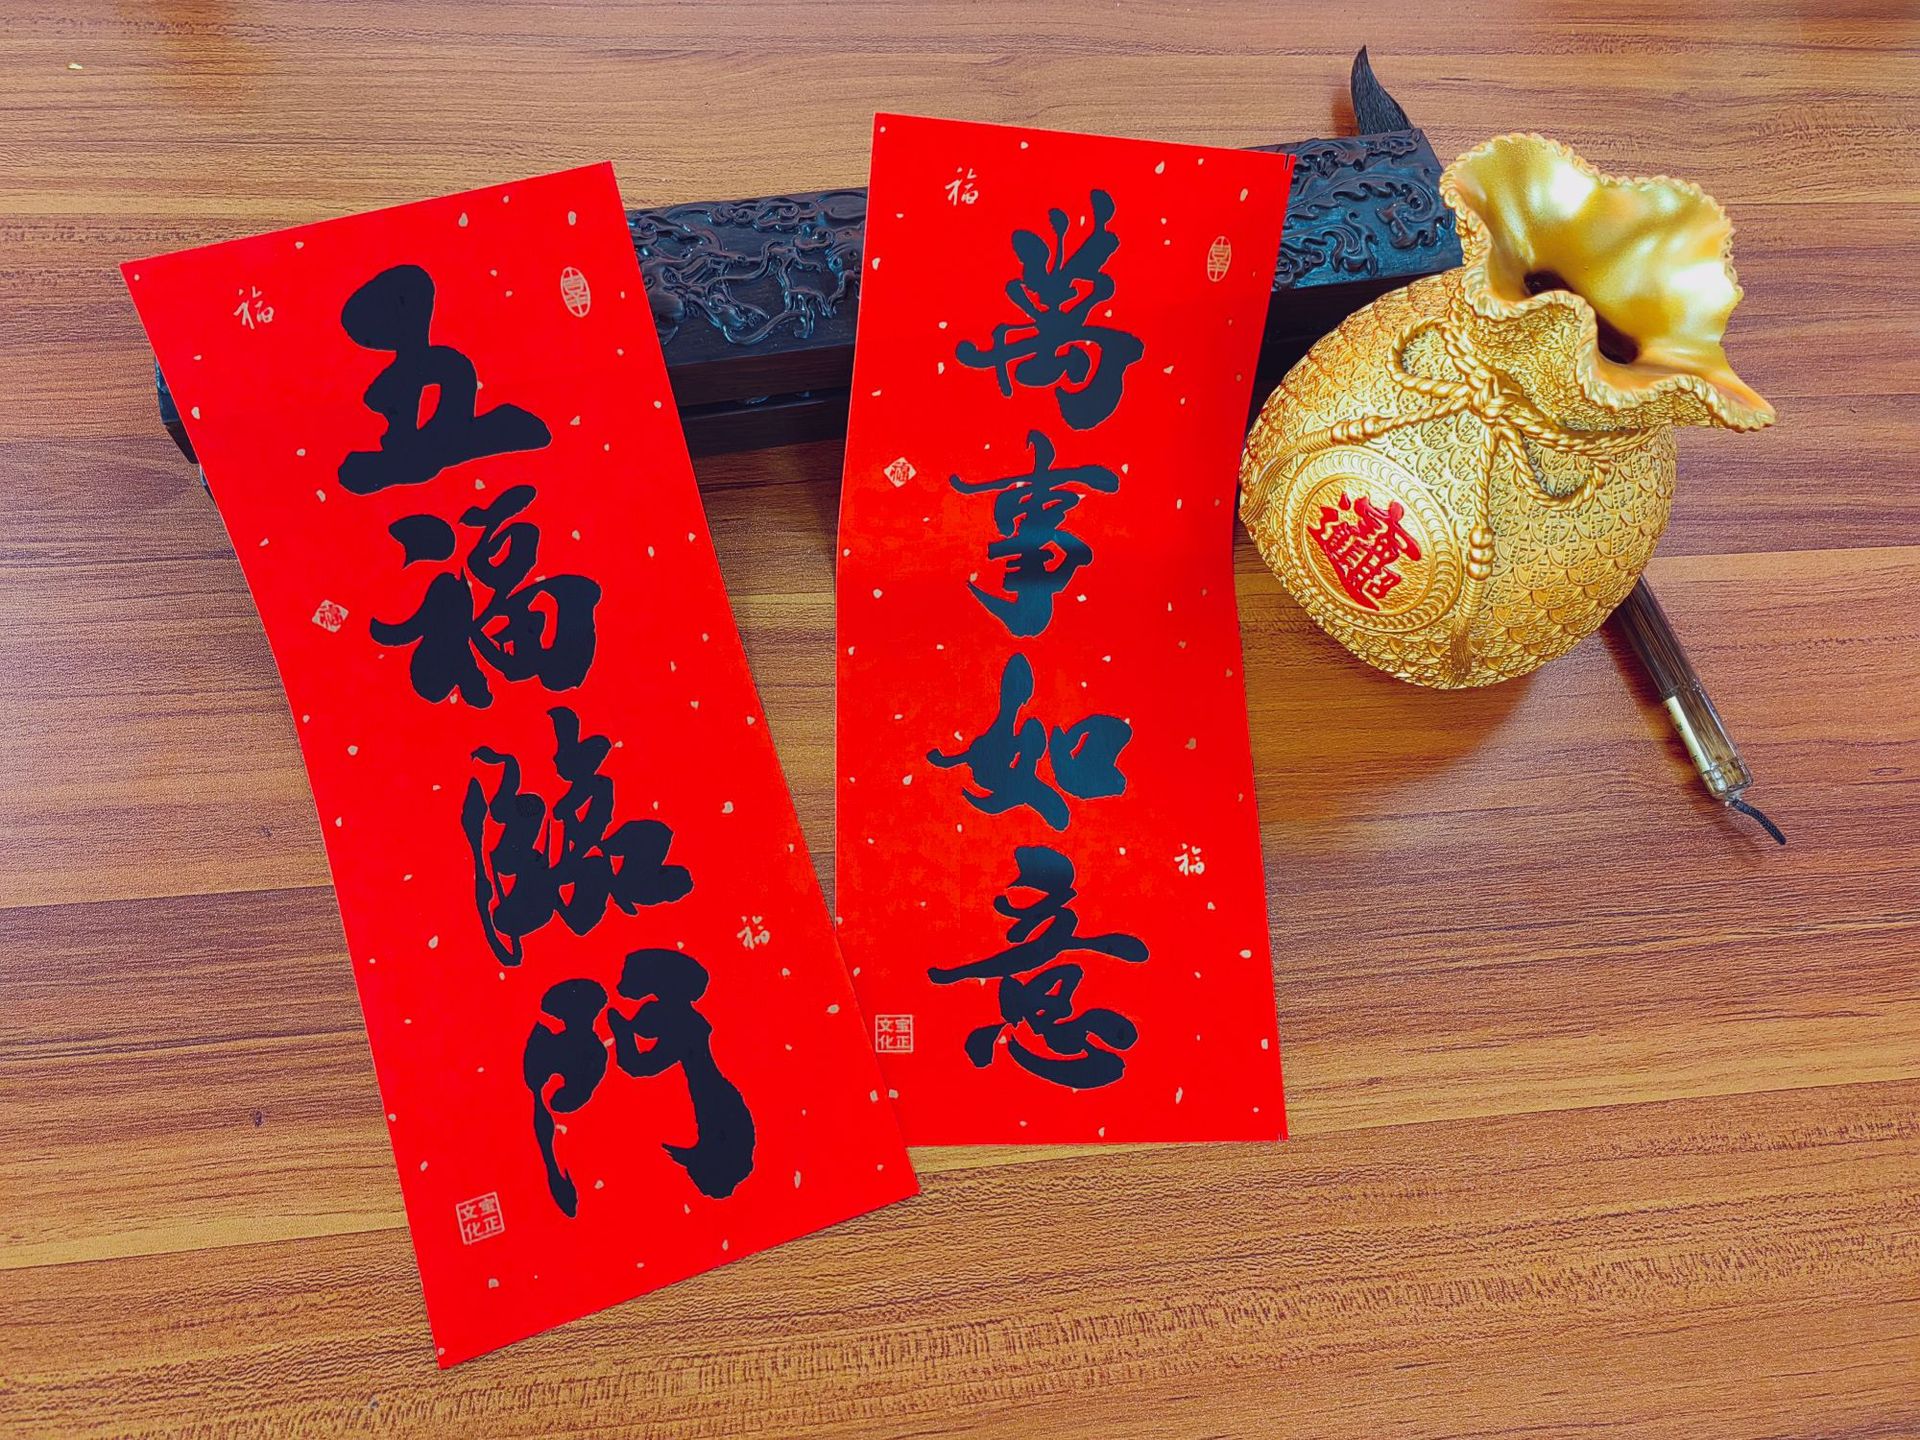 五福臨門
福
福
福
宝正
文化
萬事如意
福
福
福
宝正
文化
招財進寶